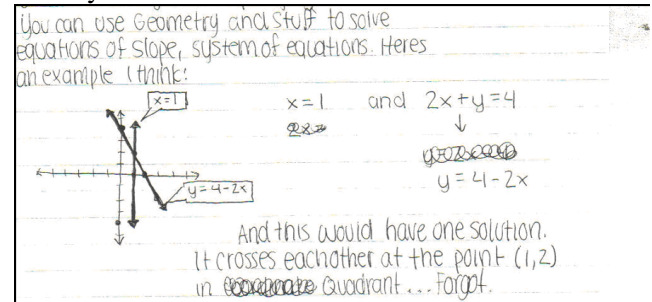 You can use Geometry and stuff to solve
equations of slope, system of equations. Heres
an example I think:
x=1
x=1 and 2x+y=4
2x=
y=4-2x
y=4-2x
And this would have one solution.
It crosses eachother at the point (1,2)
in Quadrant... Forgot.